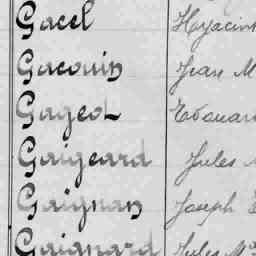 Gacel Hyacin
Gacouin Jean M
Gageot Edouar
Gaigeard Jules
Gaignan Joseph E
Gaignard Jules M